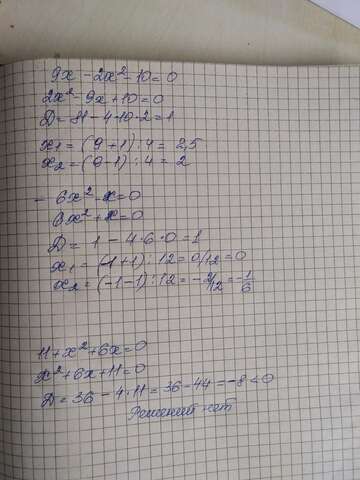 9x - 2x² - 10 = 0
2x² - 9x + 10 = 0
D = 81 - 4·10·2 = 1
x₁ = (9+1):4 = 2,5
x₂ = (9-1):4 = 2
- 6x² - x = 0
6x² + x = 0
D = 1 - 4·6·0 = 1
x₁ = (-1+1):12 = 0/12 = 0
x₂ = (-1-1):12 = -2/12 = -1/6
11 + x² + 6x = 0
x² + 6x + 11 = 0
D = 36 - 4·11 = 36 - 44 = -8 < 0
Решений нет